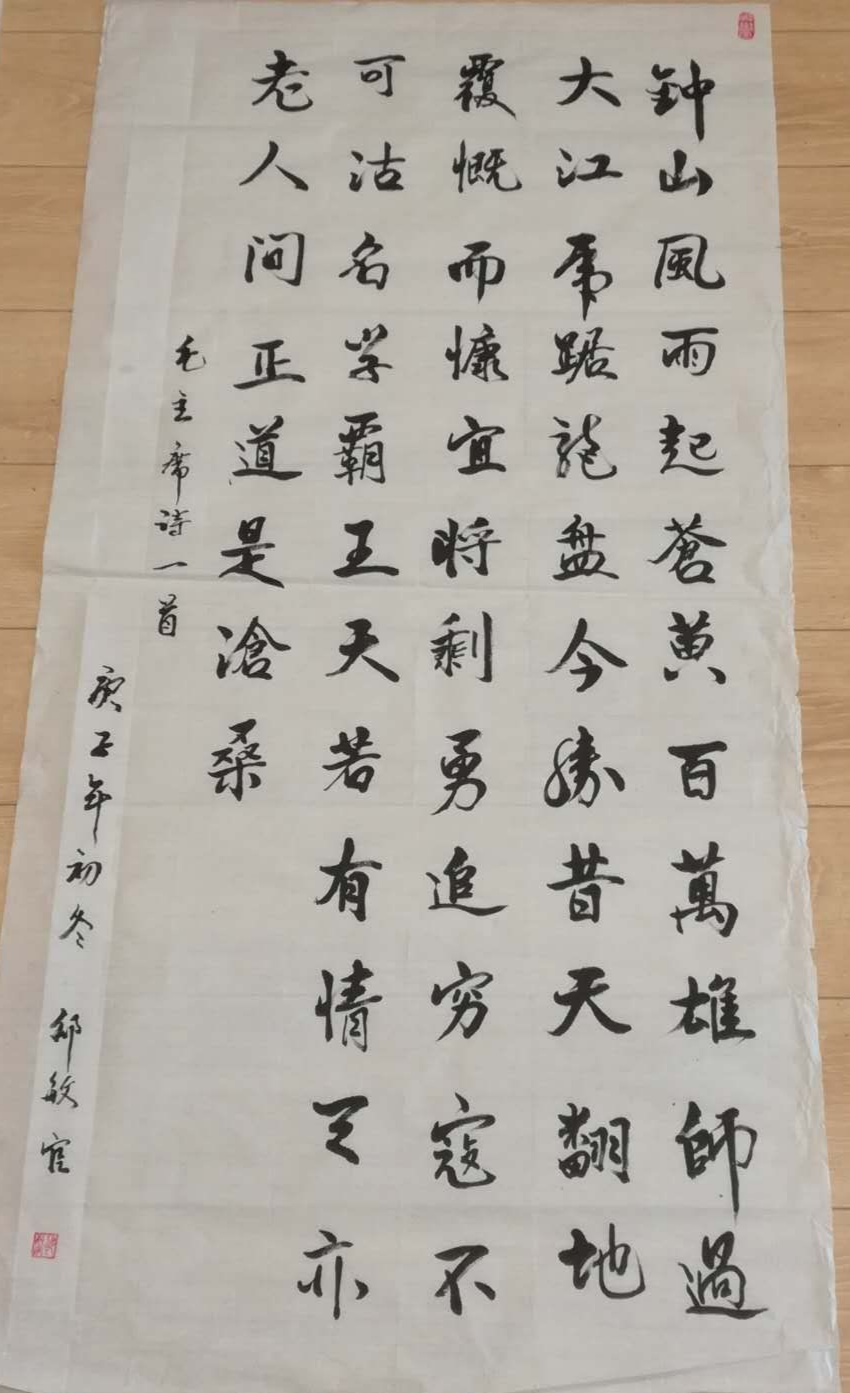 钟山風雨起蒼黄百萬雄師過
大江虎踞龍盘今勝昔天翻地
覆慨而慷宜将剩勇追穷寇不
可沽名学霸王天若有情天亦
老人间正道是滄桑
毛主席诗一首
庚子年初冬 邱敏官